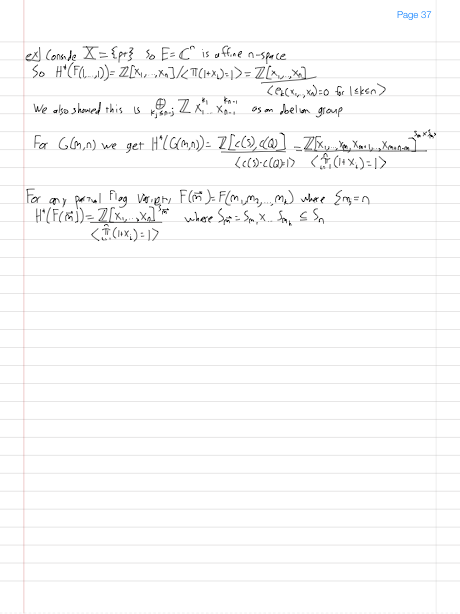 Page 37
ex) Conside X = {pt} so E = ℂⁿ is affine n-space
So H*(F(1,...,1)) = ℤ[x₁,...,xₙ]/<π(1+xᵢ)=1> = ℤ[x₁,...,xₙ]
<eₖ(x₁,...,xₙ)=0 for 1≤k≤n>
We also showed this is ⊕_{kⱼ≤n-j} ℤ x₁^{k₁}...xₙ₋₁^{kₙ₋₁} as an abelian group
For G(m,n) we get H*(G(m,n)) = ℤ[c(S),c(Q)] = ℤ[x₁,...,xₘ,xₘ₊₁,...,xₘ₊ₙ₋ₘ]
<c(S)·c(Q)=1> <π(1+xᵢ)=1>
For any partial Flag Variety F(m⃗) = F(m₁,m₂,...,mₖ) where Σmⱼ=n
H*(F(m⃗)) = ℤ[x₁,...,xₙ]^{S_m⃗} where S_m⃗ = Sₘ₁ x...Sₘₖ ≤ Sₙ
<π(1+xᵢ)=1>